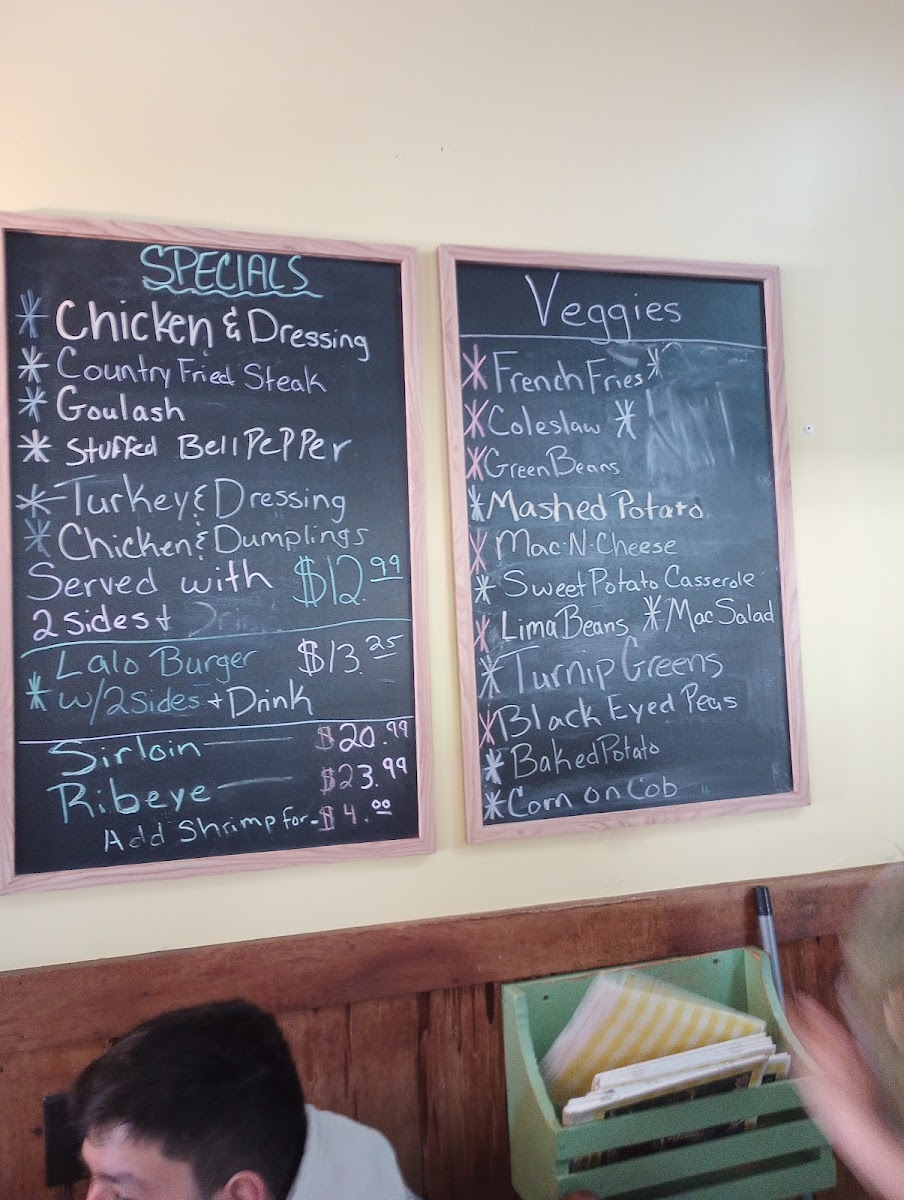 SPECIALS
* Chicken & Dressing
* Country Fried Steak
* Goulash
* Stuffed Bell PePPer
* Turkey & Dressing
* Chicken & Dumplings
Served with $12.99
2 Sides + Drink
Lalo Burger $13.25
* w/2 Sides + Drink
Sirloin — $20.99
Ribeye — $23.99
Add Shrimp for - $4.00
Veggies
* French Fries *
* Coleslaw *
* Green Beans
* Mashed Potato
* Mac-N-Cheese
* Sweet Potato Casserole
* Lima Beans * Mac Salad
* Turnip Greens
* Black Eyed Peas
* Baked Potato
* Corn on Cob